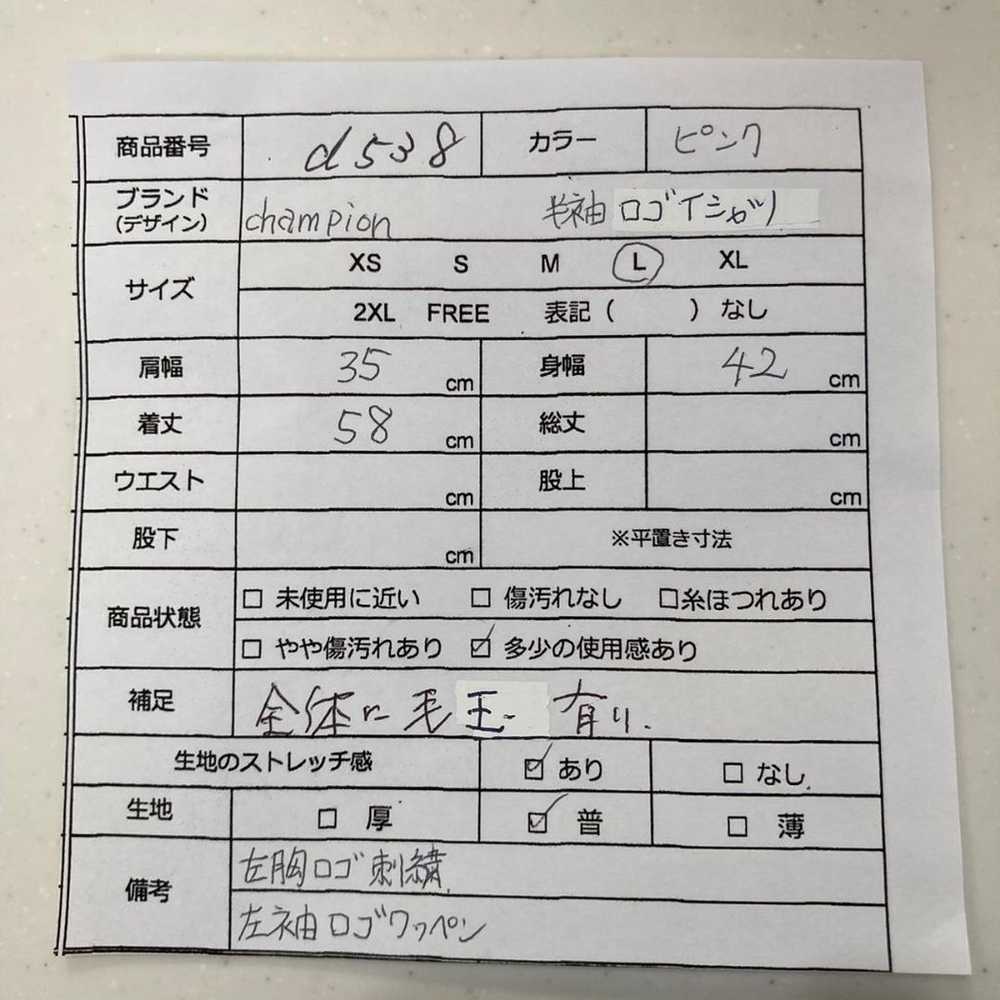 商品番号 d538 カラー ピンク
ブランド champion 半袖 ロゴTシャツ
(デザイン)
サイズ XS S M L XL
2XL FREE 表記 ( ) なし
肩幅 35 cm 身幅 42 cm
着丈 58 cm 総丈 cm
ウエスト cm 股上 cm
股下 cm ※平置き寸法
商品状態 □ 未使用に近い □ 傷汚れなし □糸ほつれあり
□ やや傷汚れあり ☑ 多少の使用感あり
補足 全体に毛玉有り.
生地のストレッチ感 ☑ あり □ なし
生地 □ 厚 ☑ 普 □ 薄
備考 左胸ロゴ刺繍
左袖ロゴワッペン